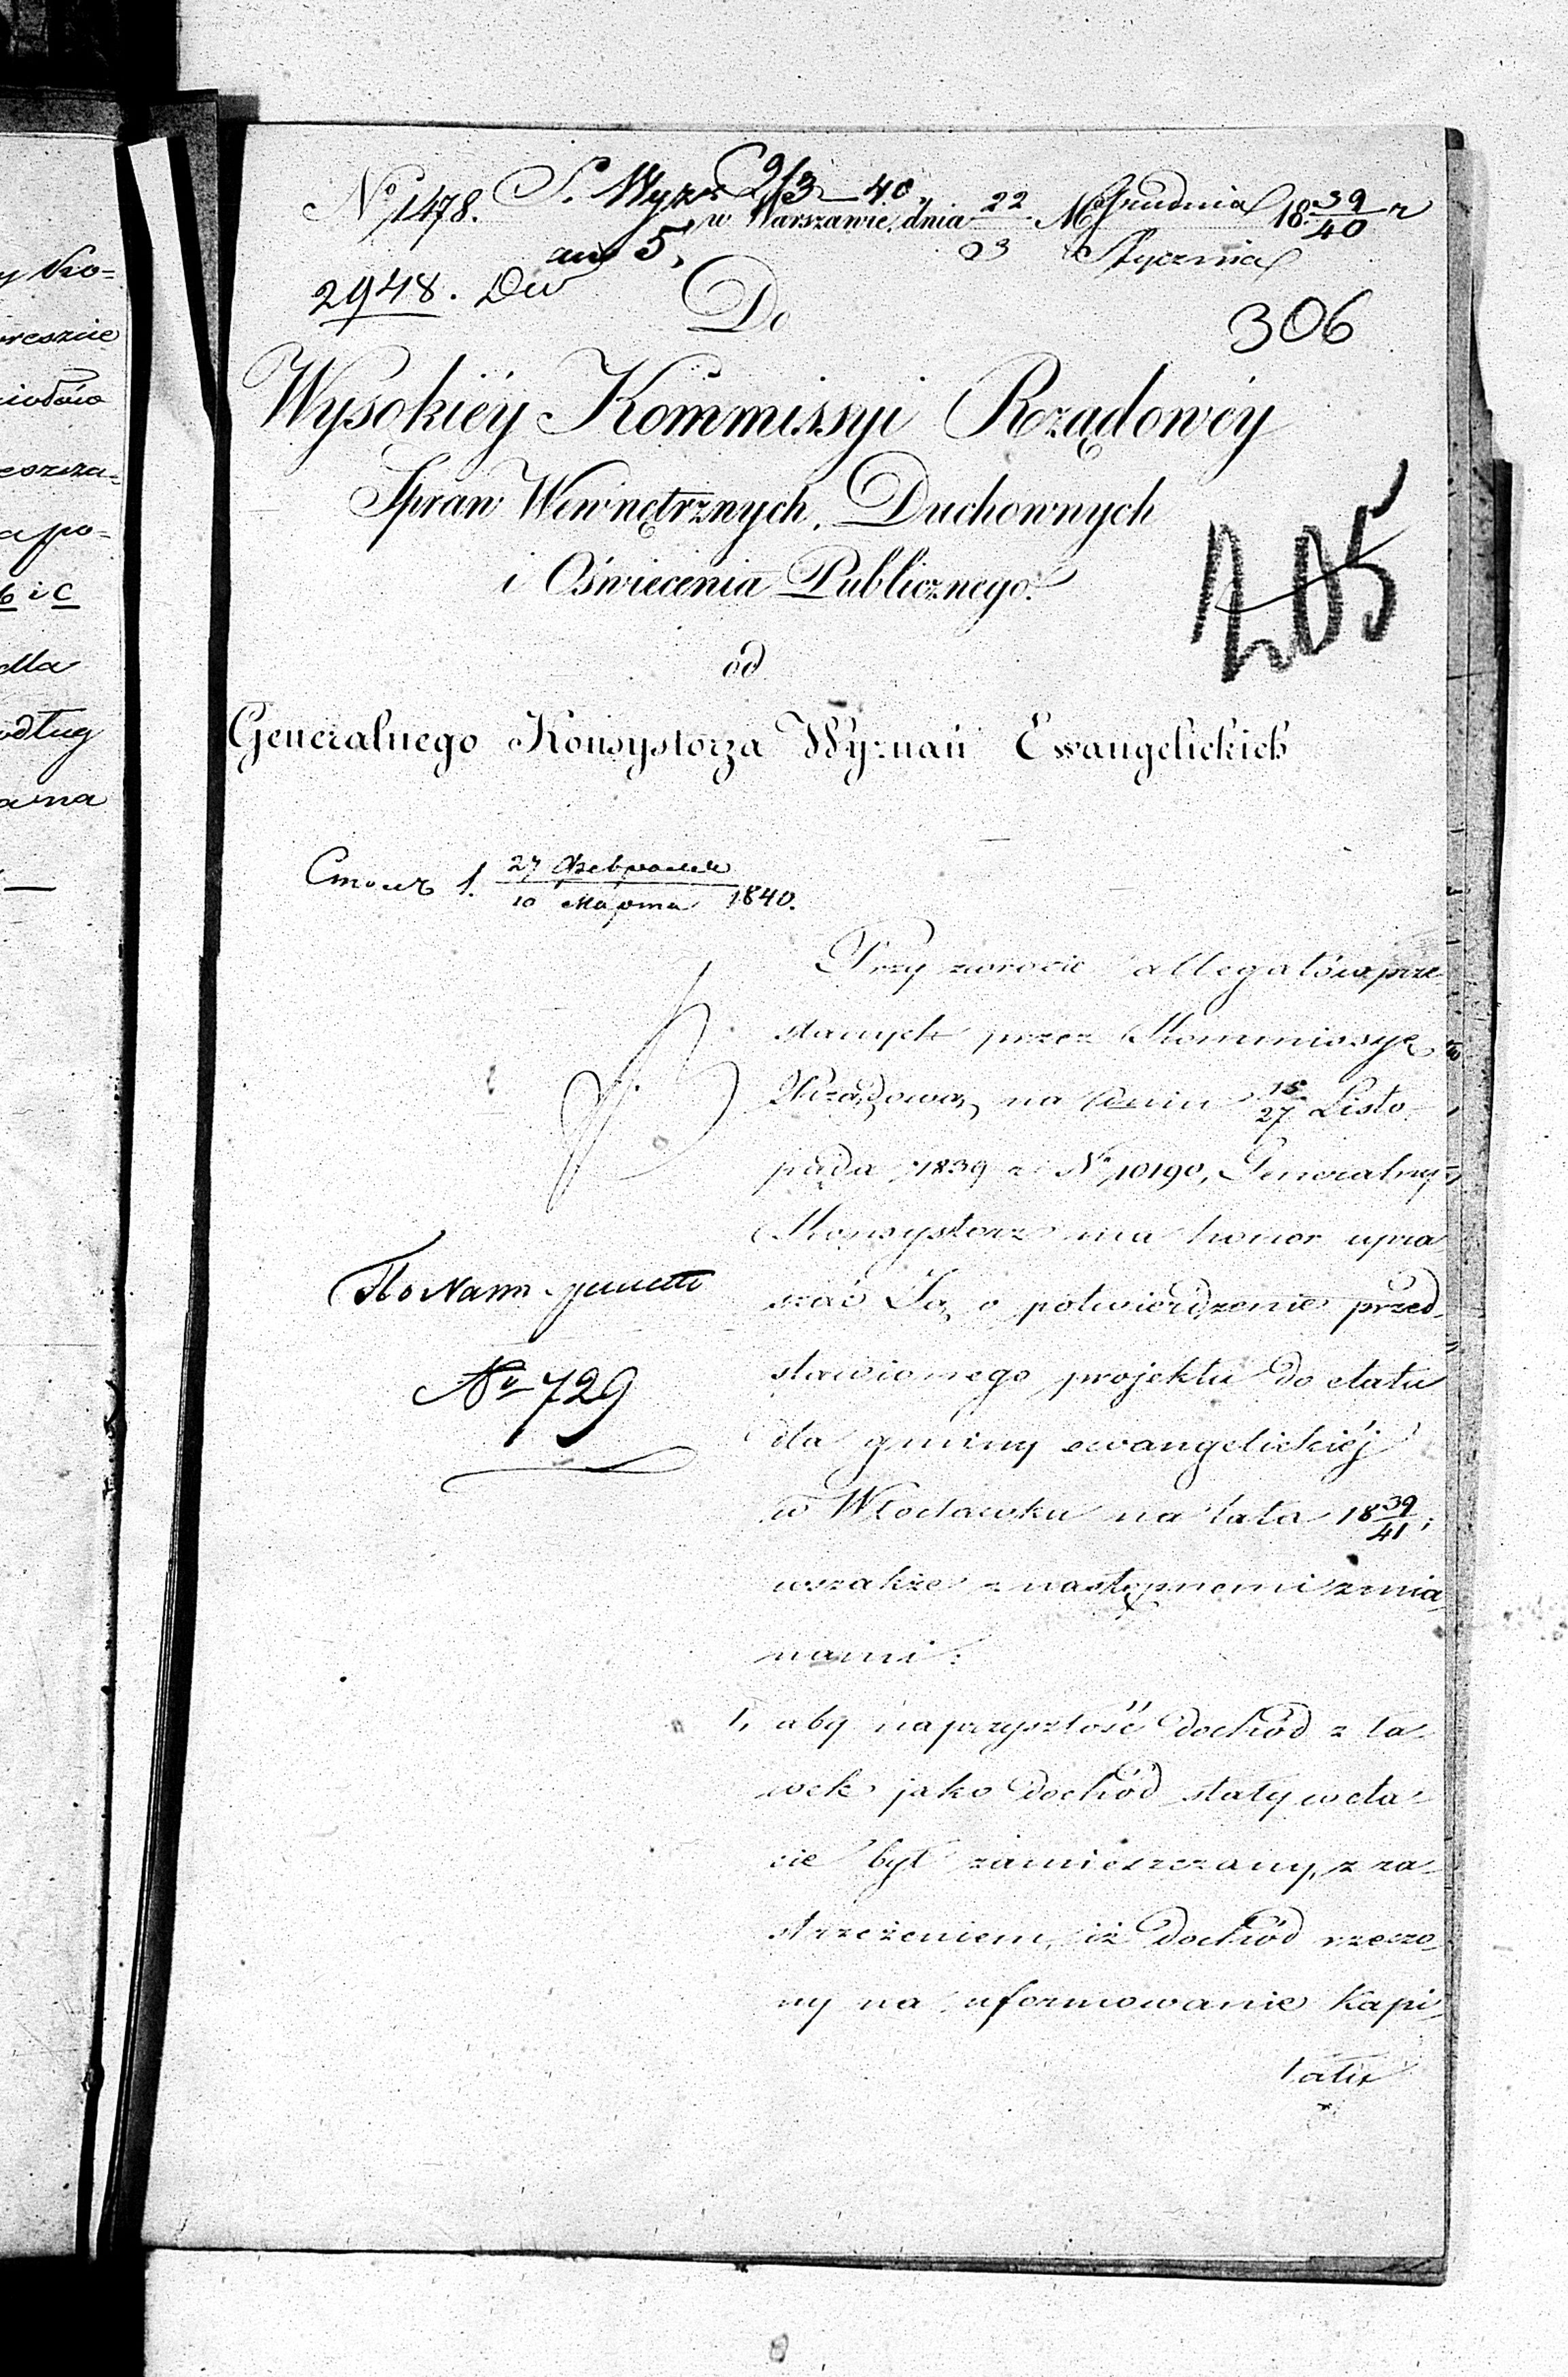 y Ko-
reszcie
ciołów
eszcza-
a po-
b i c
dla
odług
a na
No 1478. S. Wyzn 9/3 40.
w Warszawie, dnia 22 Grudnia 18 39/40 r
3 Stycznia
5,
2948. Dw
Do
306
Wysokiéy Kommissyi Rządowéy
Spraw Wewnętrznych, Duchownych
i Oświecenia Publicznego.
205
od
Generalnego Konsystorza Wyznań Ewangelickich
1. 27 Февраля
10 Марта 1840.
Przy zwrocie allegatów prze-
słanych przez Kommissyę
Rządową na dniu 15/27 Listo-
pada 1839 r. No 10190, Generalny
Konsystorz ma honor upra-
szać Ją o potwierdzenie przed-
stawionego projektu do etatu
dla gminy ewangelickiéj
w Włocławku na lata 18 39/41;
wszakże z następnemi zmia-
nami:
1, aby na przyszłość dochód z ła-
wek jako dochód stały w eta-
cie był zamieszczany, z za-
strzeżeniem, iż dochód rzeczo-
ny na uformowanie kapi-
tału
No 729